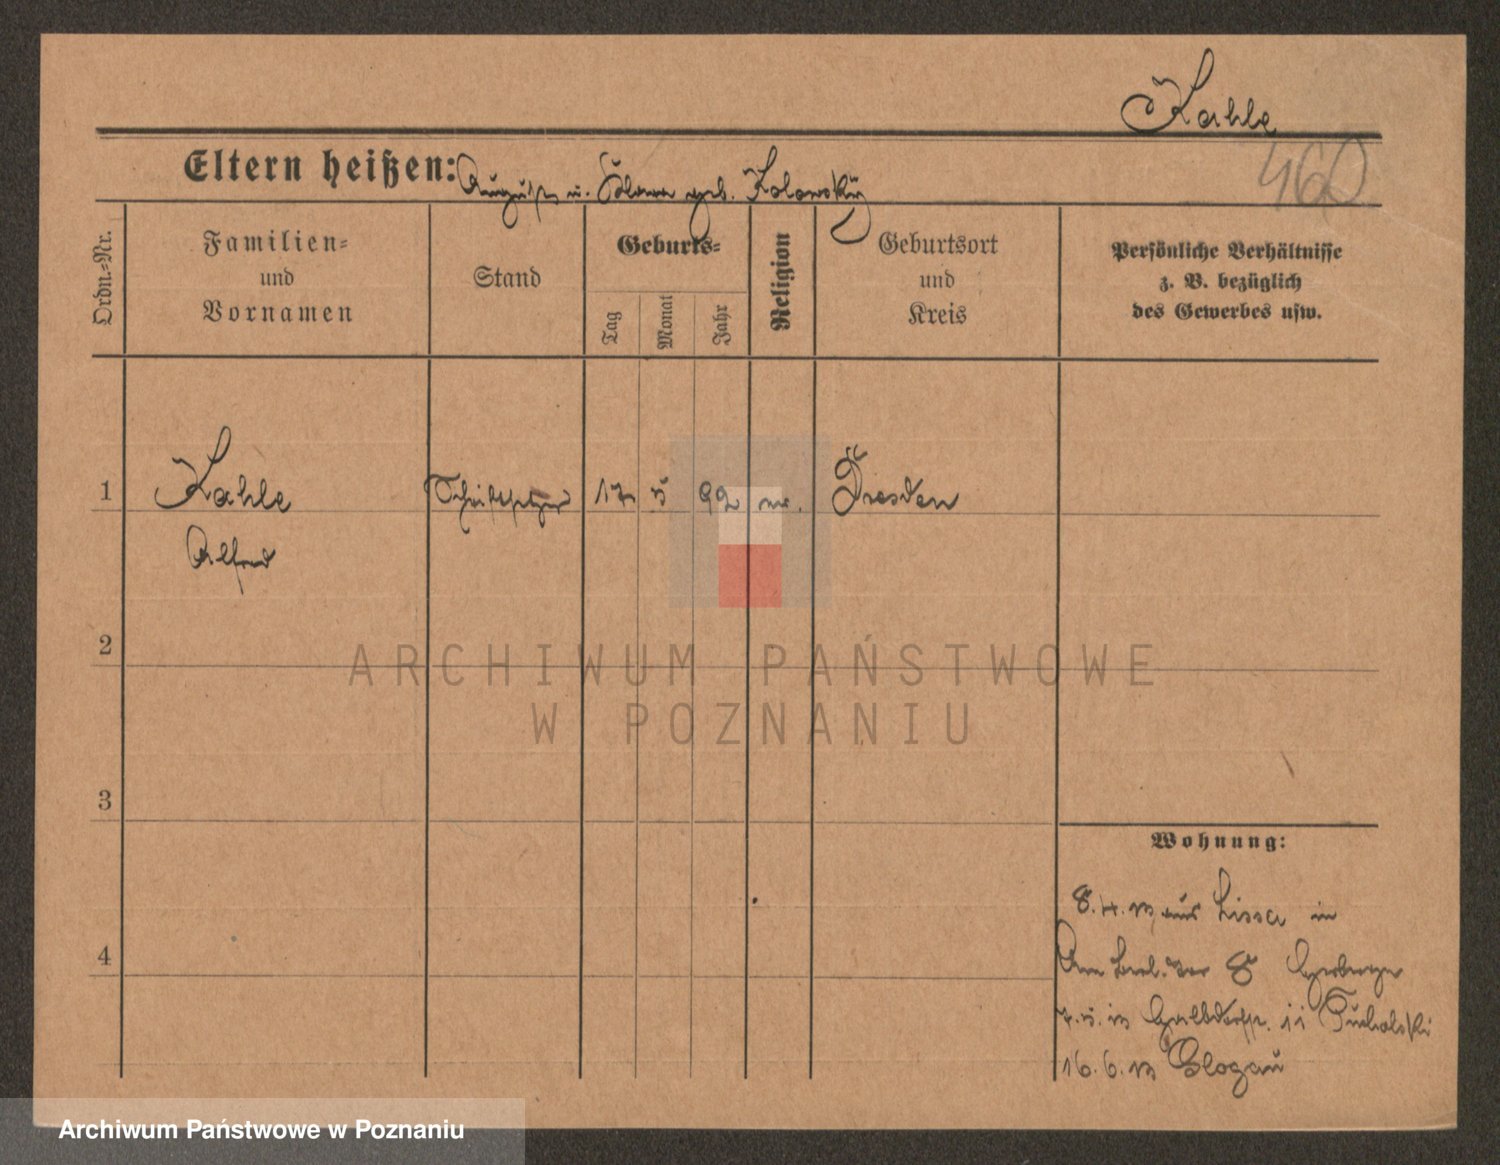 Kahle
460
Eltern heißen: August u. Clara geb. Kolowsky
Ordn.=Nr.
Familien=
und
Vornamen
Stand
Geburts=
Tag
Monat
Jahr
Religion
Geburtsort
und
Kreis
Persönliche Verhältnisse
z. B. bezüglich
des Gewerbes usw.
1 Kahle Schriftsetzer 17 5 92 ev. Dresden
Alfred
2
ARCHIWUM PAŃSTWOWE
W POZNANIU
3
Wohnung:
8.4.13 aus Lissa in
4
Am Berl. Tor 8 Herberge
7.5.13 11 Tucholski
16.6.13 Glogau
Archiwum Państwowe w Poznaniu